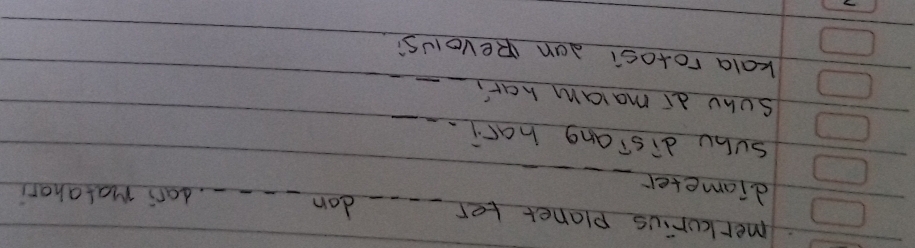 merkurius planet ter ----- dan -----. dari Matahari
diameter -----
suhu disiang hari. ---
suhu di malam hari. ----
kala rotasi dan Revolusi